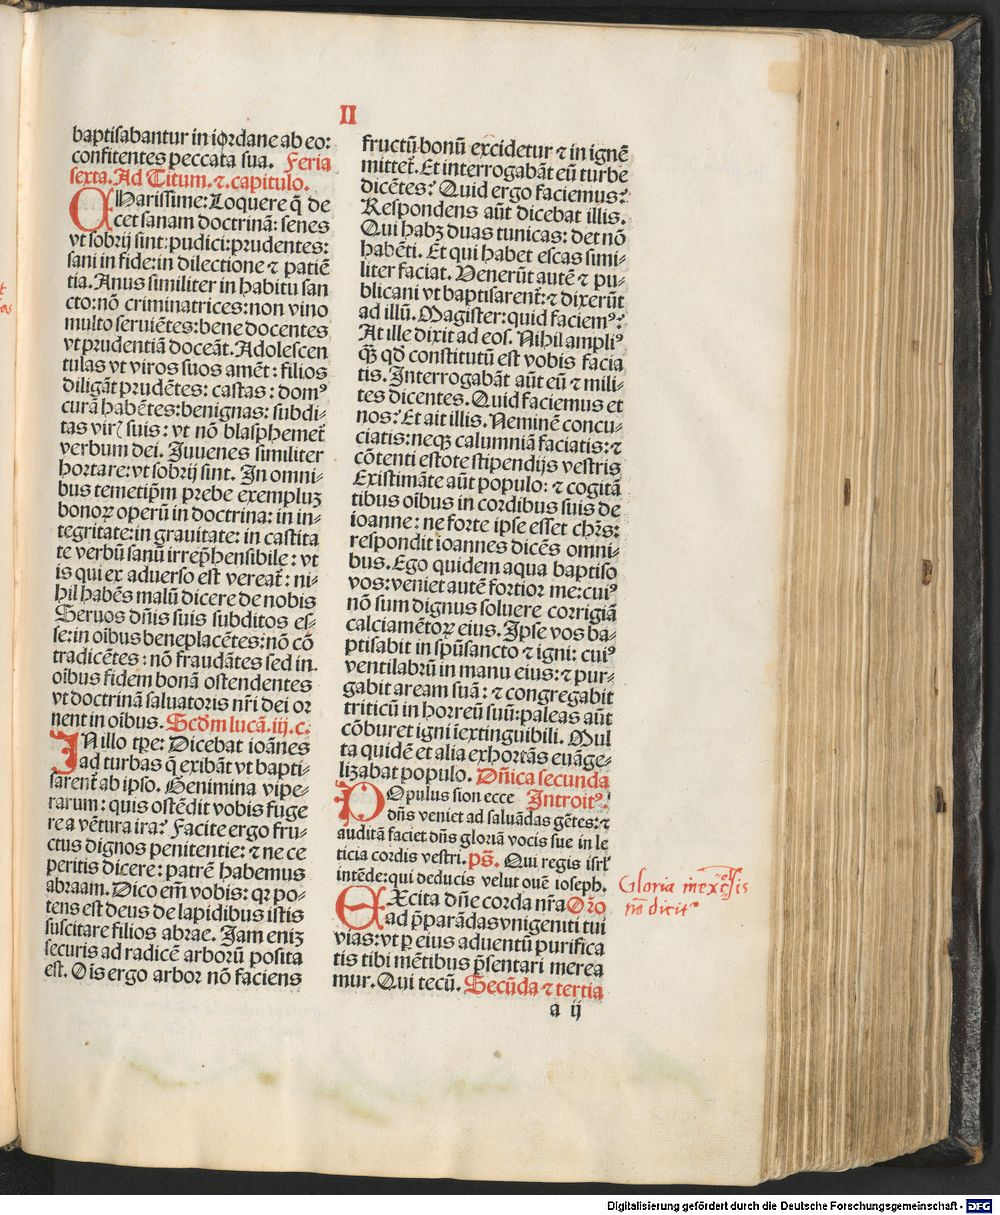 II
baptisabantur in iordane ab eo:
confitentes peccata sua. Feria
sexta. Ad Titum. ⁊. capitulo.
CHarissime: Loquere q̄ de
cet sanam doctrinā: senes
vt sobrij sint: pudici: prudentes:
sani in fide: in dilectione ⁊ patiē
tia. Anus similiter in habitu san
cto: nō criminatrices: non vino
multo seruiētes: bene docentes
vt prudentiā doceāt. Adolescen
tulas vt viros suos amēt: filios
diligāt prudētes: castas: domꝰ
curā habētes: benignas: subdi⸗
tas virꝭ suis: vt nō blasphemet̄
verbum dei. Juuenes similiter
hortare: vt sobrij sint. In omni⸗
bus temetip̄m prebe exempluꝫ
bonoꝝ operū in doctrina: in in⸗
tegritate: in grauitate: in castita
te verbū sanū irrep̄hensibile: vt
is qui ex aduerso est vereat̄: ni⸗
hil habēs malū dicere de nobis
Seruos dn̄is suis subditos es⸗
se: in oībus beneplacētes: nō cō
tradicētes: nō fraudātes sed in
oībus fidem bonā ostendentes
vt doctrinā saluatoris nr̄i dei or
nent in oībus. Scd̄m lucā. iij. c.
IN illo tp̄e: Dicebat ioānes
ad turbas q̄ exibāt vt bapti⸗
sarent̄ ab ipso. Genimina vipe⸗
rarum: quis ostēdit vobis fuge
re a vētura ira? Facite ergo fru⸗
ctus dignos penitentie: ⁊ ne ce
peritis dicere: patrē habemus
abraam. Dico em̄ vobis: qꝛ po⸗
tens est deus de lapidibus istis
suscitare filios abrae. Iam eniꝫ
securis ad radicē arborū posita
est. Oīs ergo arbor nō faciens
fructū bonū excidetur ⁊ in ignē
mittet̄. Et interrogabāt eū turbe
dicētes: Quid ergo faciemus?
Respondens aūt dicebat illis.
Qui habꝫ duas tunicas: det nō
habēti. Et qui habet escas simi⸗
liter faciat. Venerūt autē ⁊ pu⸗
blicani vt baptisarent̄: ⁊ dixerūt
ad illū. Magister: quid faciemꝰ?
At ille dixit ad eos. Nihil ampliꝰ
qꝫ̄ qd̄ constitutū est vobis facia
tis. Interrogabāt aūt eū ⁊ mili⸗
tes dicentes. Quid faciemus et
nos? Et ait illis. Neminē concu⸗
ciatis: neqꝫ calumniā faciatis: ⁊
cōtenti estote stipendijs vestris
Existimāte aūt populo: ⁊ cogitā
tibus oībus in cordibus suis de
ioanne: ne forte ipse esset chr̄s:
respondit ioannes dicēs omni⸗
bus. Ego quidem aqua baptiso
vos: veniet autē fortior me: cuiꝰ
nō sum dignus soluere corrigiā
calciamētoꝝ eius. Ipse vos ba⸗
ptisabit in spū sancto ⁊ igni: cuiꝰ
ventilabrū in manu eius: ⁊ pur⸗
gabit aream suā: ⁊ congregabit
triticū in horreū suū: paleas aūt
cōburet igni īextinguibili. Mul
ta quidē et alia exhortās euāge⸗
lizabat populo. Dn̄ica secunda
POpulus sion ecce Introitꝰ.
dn̄s veniet ad saluādas gētes: ⁊
auditā faciet dn̄s gloriā vocis sue in le
ticia cordis vestri. ps̄. Qui regis isrl̄
intēde: qui deducis velut ouē ioseph.
EXcita dn̄e corda nr̄a Or̄o
ad p̄parādas vnigeniti tui
vias: vt ꝑ eius aduentū purifica
tis tibi mētibus p̄sentari merea
mur. Qui tecū. Secūda ⁊ tertia
a ij
Gloria in excelsis
nō dicitꝰ
Digitalisierung gefördert durch die Deutsche Forschungsgemeinschaft - DFG